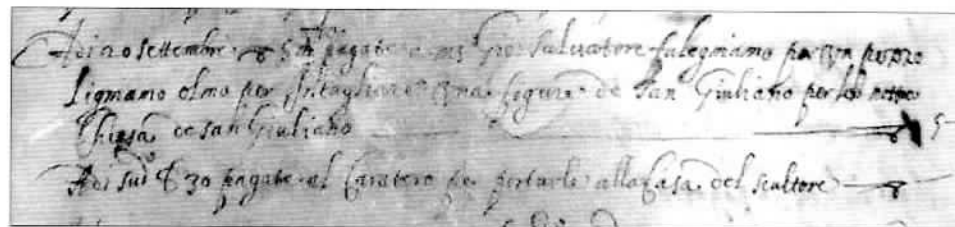 Adi 20 settembre Δ 5 pagate a ms Gio: Salvatore falegniamo per un pezzo
Ligniamo olmo per Intagliare una figura de San Giuliano per la nostra
Chiesa de san Giuliano 5
Adi sudo 30 pagate al Caratero per portarlo alla Casa del scultore